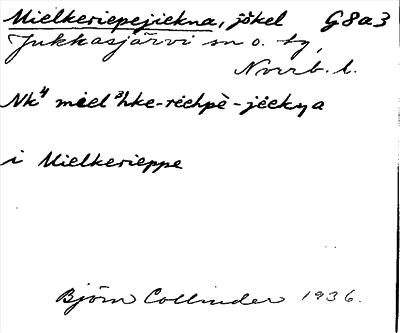 Mielkeriepejiekna, jökel G8a3
Jukkasjärvi sn o. tg,
Norrb. l.
Nk⁴ miel³hke-riehpè-jiekŋa
i Mielkerieppe
Björn Collinder 1936.